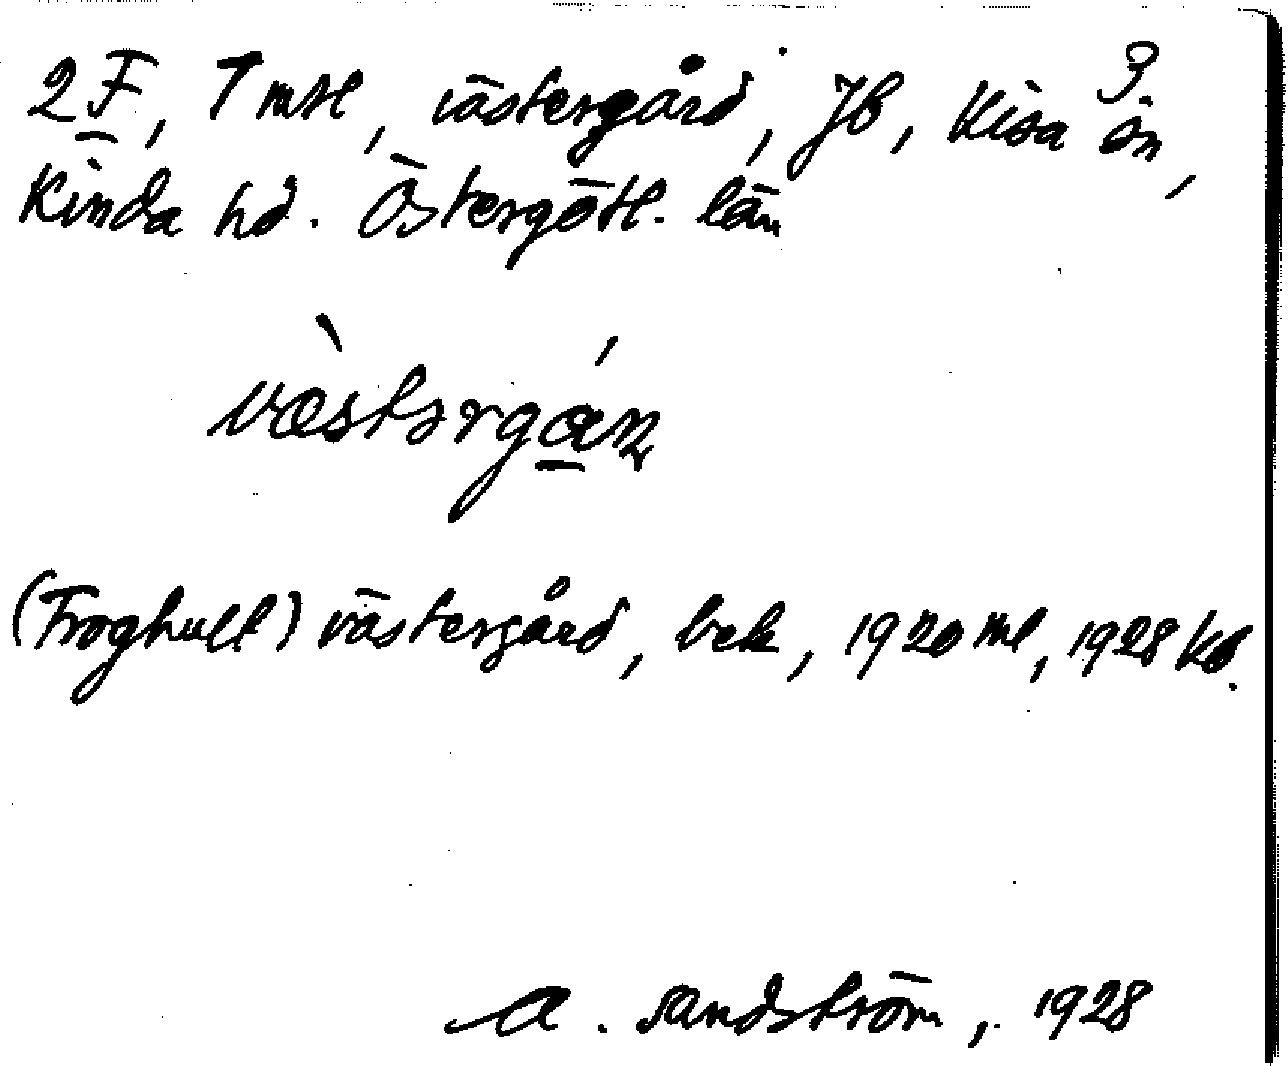 2 F, 1 mtl, Västergård, JB, Kisa sn,
Kinda hd. Östergötl. län
væstərgan
(Froghult) Västergård, bek, 1920 ml, 1928 kd.
A. Sandström, 1928